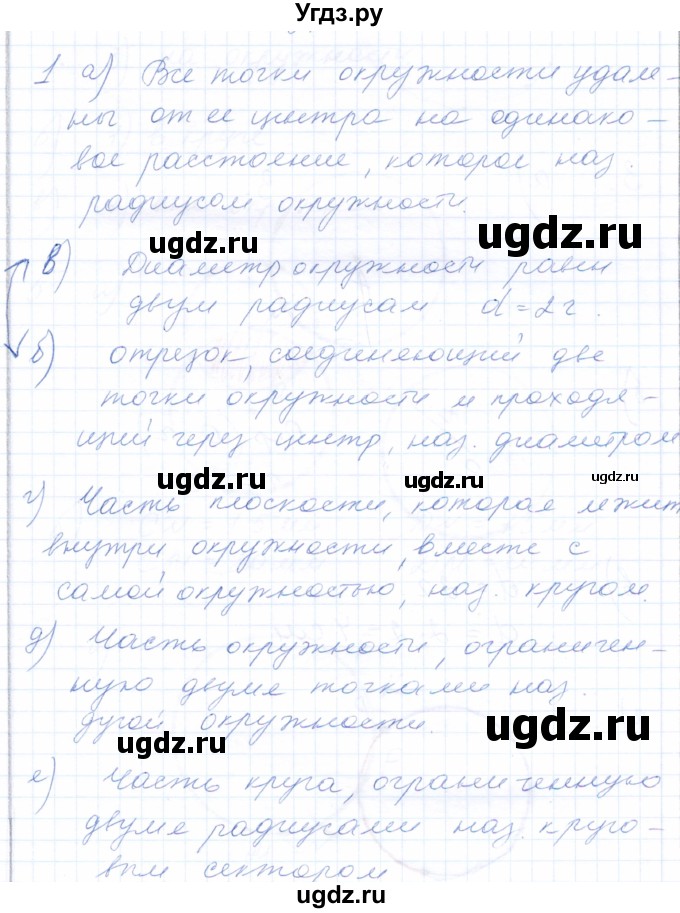 Угдз.ру
1 а) Все точки окружности удале-
ны от ее центра на одинако-
вое расстояние, которое наз.
радиусом окружности.
ugdz.ru
ugdz.ru
в) Диаметр окружности равен
двум радиусам d=2r.
ugdz.ru
ugdz.ru
б) отрезок, соединяющий две
точки окружности и проходя-
щий через центр, наз. диаметром
ugdz.ru
ugdz.ru
ugdz.ru
г) Часть плоскости, которая лежит
внутри окружности, вместе с
самой окружностью, наз. кругом.
ugdz.ru
ugdz.ru
д) Часть окружности, ограничен-
ную двумя точками наз.
дугой окружности.
ugdz.ru
ugdz.ru
е) Часть круга, ограниченную
двумя радиусами наз. круго-
вым сектором
ugdz.ru
ugdz.ru